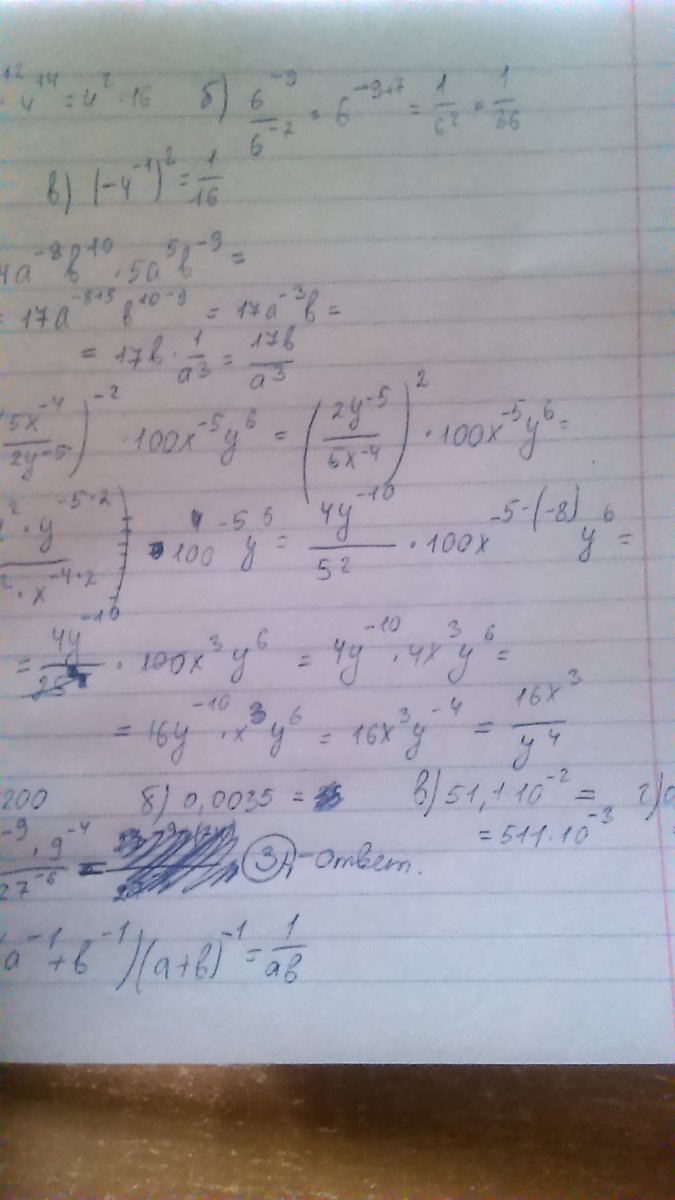 12 · 4^14 = 4^2 · 16 б) 6^-9 / 6^-2 = 6^-9+7 = 1/6^2 = 1/36
в) (-4^-1)^2 = 1/16
4a^-8 b^10 · 5a^5 b^-9 =
= 17a^-8+5 b^10-9 = 17a^-3 b =
= 17b · 1/a^3 = 17b/a^3
(5x^-4 / 2y^-5)^-2 · 100x^-5 y^6 = (2y^-5 / 5x^-4)^2 · 100x^-5 y^6 =
^2 · y^-5·2 / ^2 · x^-4·2) · 100^-5 y^6 = 4y^-10 / 5^2 · 100x^-5-(-8) y^6 =
= 4y^-10 / 25 · 100x^3 y^6 = 4y^-10 · 4x^3 y^6 =
= 16y^-10 · x^3 y^6 = 16x^3 y^-4 = 16x^3 / y^4
200 б) 0,0035 = в) 51,1·10^-2 = г) 0
= 511·10^-3
^-9 · 9^-4 / 27^-6 = 3 - ответ.
(a^-1 + b^-1)(a+b)^-1 = 1/ab